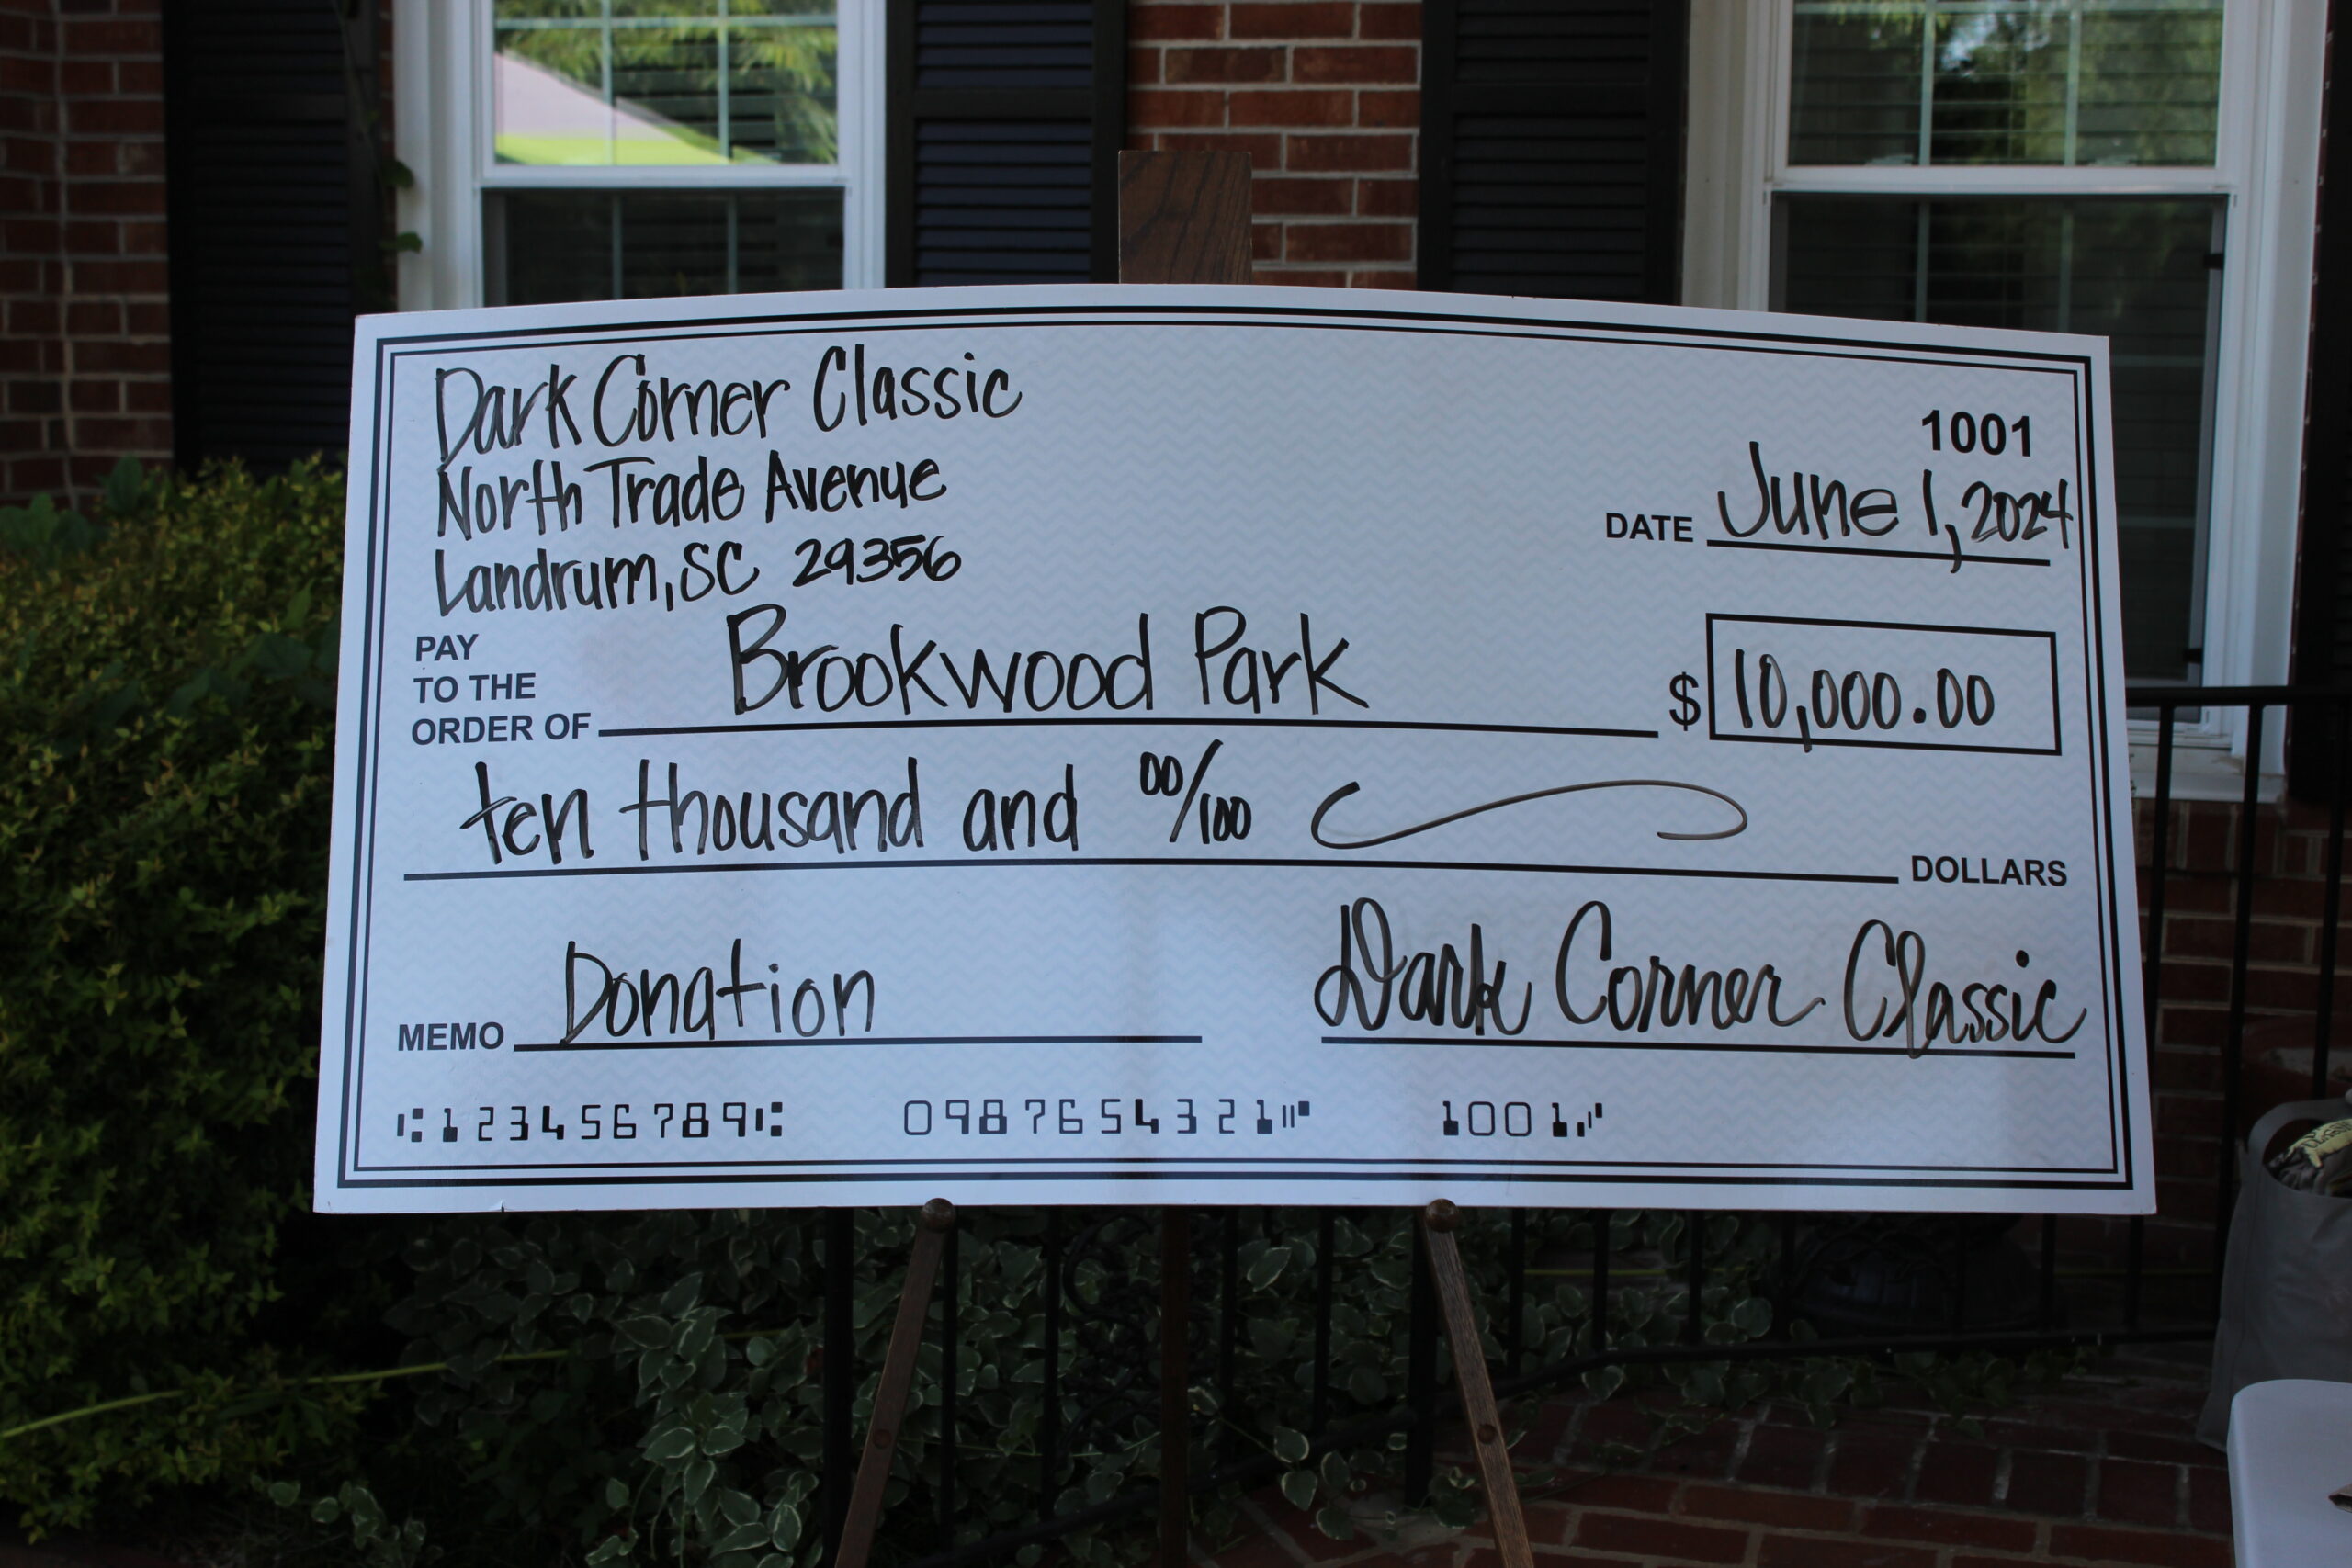 Dark Corner Classic
North Trade Avenue
Landrum, SC 29356
1001
DATE June 1, 2024
PAY
TO THE
ORDER OF Brookwood Park $ 10,000.00
ten thousand and 00/100 DOLLARS
MEMO Donation Dark Corner Classic
⑆123456789⑆ 0987654321⑈ 1001⑉